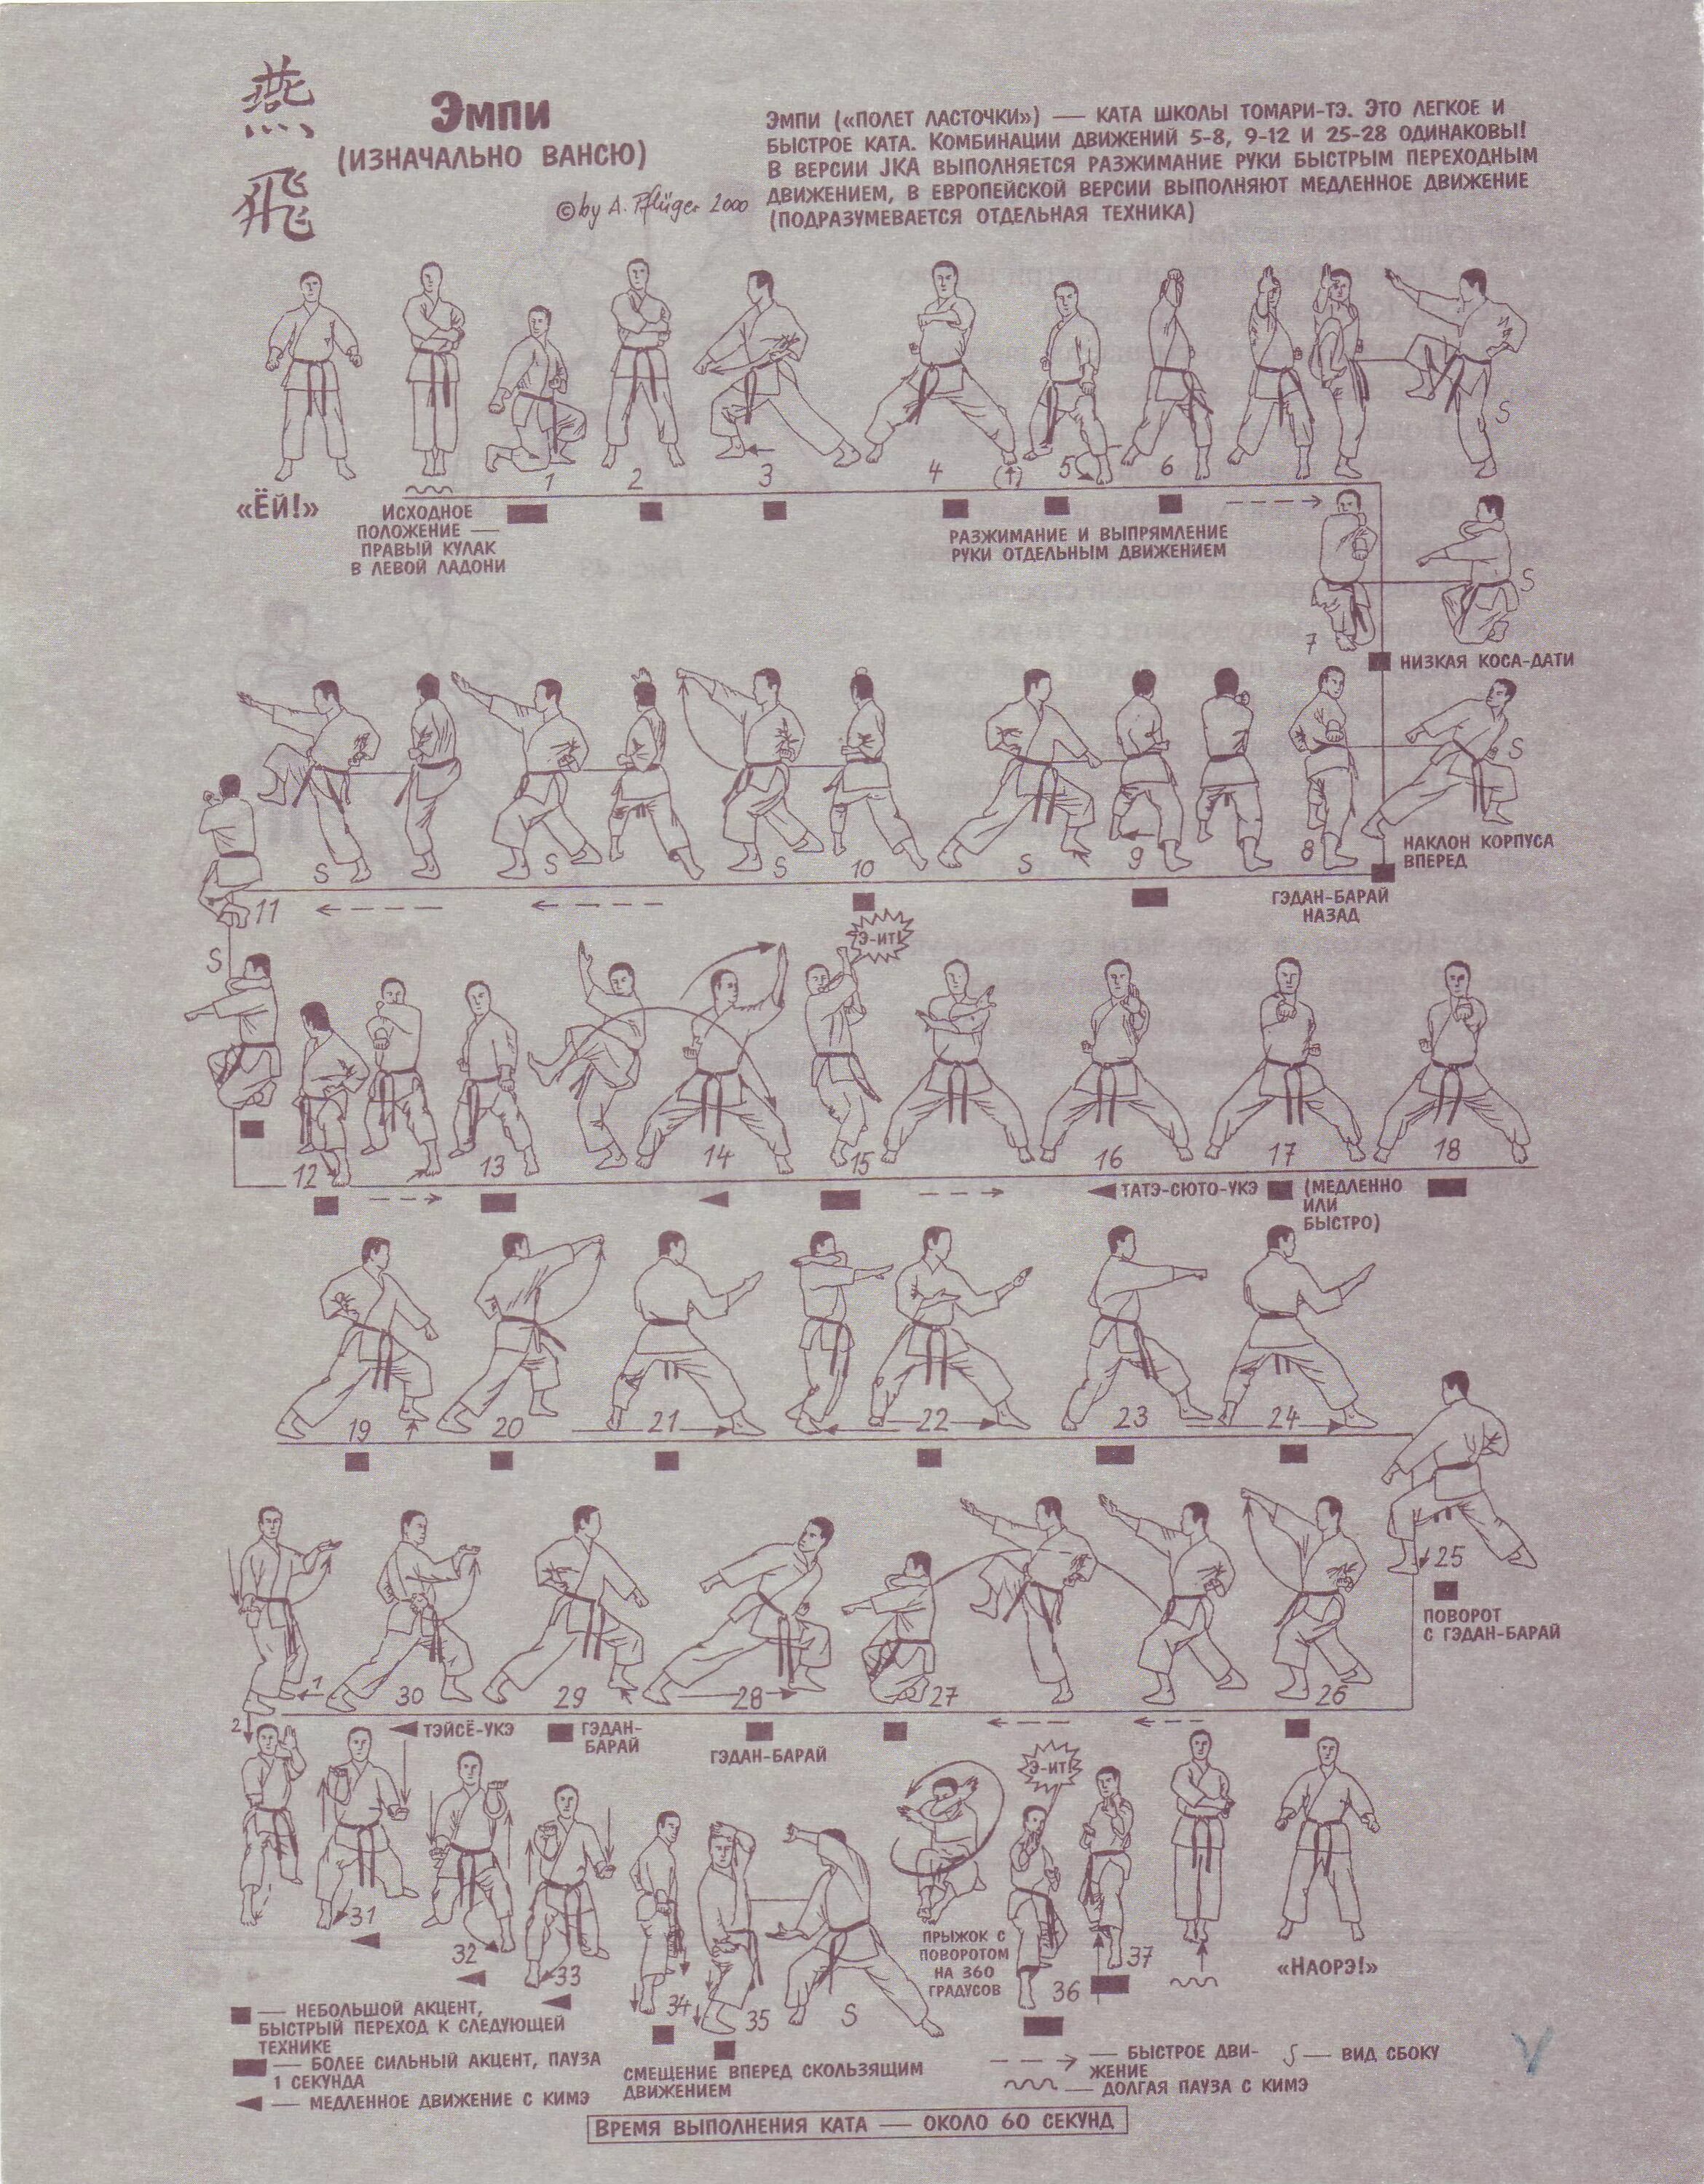 燕
飛
Эмпи
(ИЗНАЧАЛЬНО ВАНСЮ)
© by A. Pflüger 2000
ЭМПИ («ПОЛЕТ ЛАСТОЧКИ») — КАТА ШКОЛЫ ТОМАРИ-ТЭ. ЭТО ЛЕГКОЕ И
БЫСТРОЕ КАТА. КОМБИНАЦИИ ДВИЖЕНИЙ 5-8, 9-12 И 25-28 ОДИНАКОВЫ!
В ВЕРСИИ JKA ВЫПОЛНЯЕТСЯ РАЗЖИМАНИЕ РУКИ БЫСТРЫМ ПЕРЕХОДНЫМ
ДВИЖЕНИЕМ, В ЕВРОПЕЙСКОЙ ВЕРСИИ ВЫПОЛНЯЮТ МЕДЛЕННОЕ ДВИЖЕНИЕ
(ПОДРАЗУМЕВАЕТСЯ ОТДЕЛЬНАЯ ТЕХНИКА)
S
1 2 3 4 (↑) 5 6
«ЁЙ!»
ИСХОДНОЕ
ПОЛОЖЕНИЕ —
ПРАВЫЙ КУЛАК
В ЛЕВОЙ ЛАДОНИ
РАЗЖИМАНИЕ И ВЫПРЯМЛЕНИЕ
РУКИ ОТДЕЛЬНЫМ ДВИЖЕНИЕМ
S
7
НИЗКАЯ КОСА-ДАТИ
S
НАКЛОН КОРПУСА
ВПЕРЕД
S S S 10 S 9 8
ГЭДАН-БАРАЙ
НАЗАД
11
Э-ИТ!
S
12 13 14 15 16 17 18
ТАТЭ-СЮТО-УКЭ
(МЕДЛЕННО
ИЛИ
БЫСТРО)
19 20 21 22 23 24
25
ПОВОРОТ
С ГЭДАН-БАРАЙ
1 30 29 28 27 26
2
ТЭЙСЁ-УКЭ
ГЭДАН-
БАРАЙ
ГЭДАН-БАРАЙ
Э-ИТ!
31 32 33 34 35 S
ПРЫЖОК С
ПОВОРОТОМ
НА 360
ГРАДУСОВ
36 37
«НАОРЭ!»
— НЕБОЛЬШОЙ АКЦЕНТ,
БЫСТРЫЙ ПЕРЕХОД К СЛЕДУЮЩЕЙ
ТЕХНИКЕ
— БОЛЕЕ СИЛЬНЫЙ АКЦЕНТ, ПАУЗА
1 СЕКУНДА
— МЕДЛЕННОЕ ДВИЖЕНИЕ С КИМЭ
СМЕЩЕНИЕ ВПЕРЕД СКОЛЬЗЯЩИМ
ДВИЖЕНИЕМ
— БЫСТРОЕ ДВИ-
ЖЕНИЕ
S — ВИД СБОКУ
— ДОЛГАЯ ПАУЗА С КИМЭ
ВРЕМЯ ВЫПОЛНЕНИЯ КАТА — ОКОЛО 60 СЕКУНД